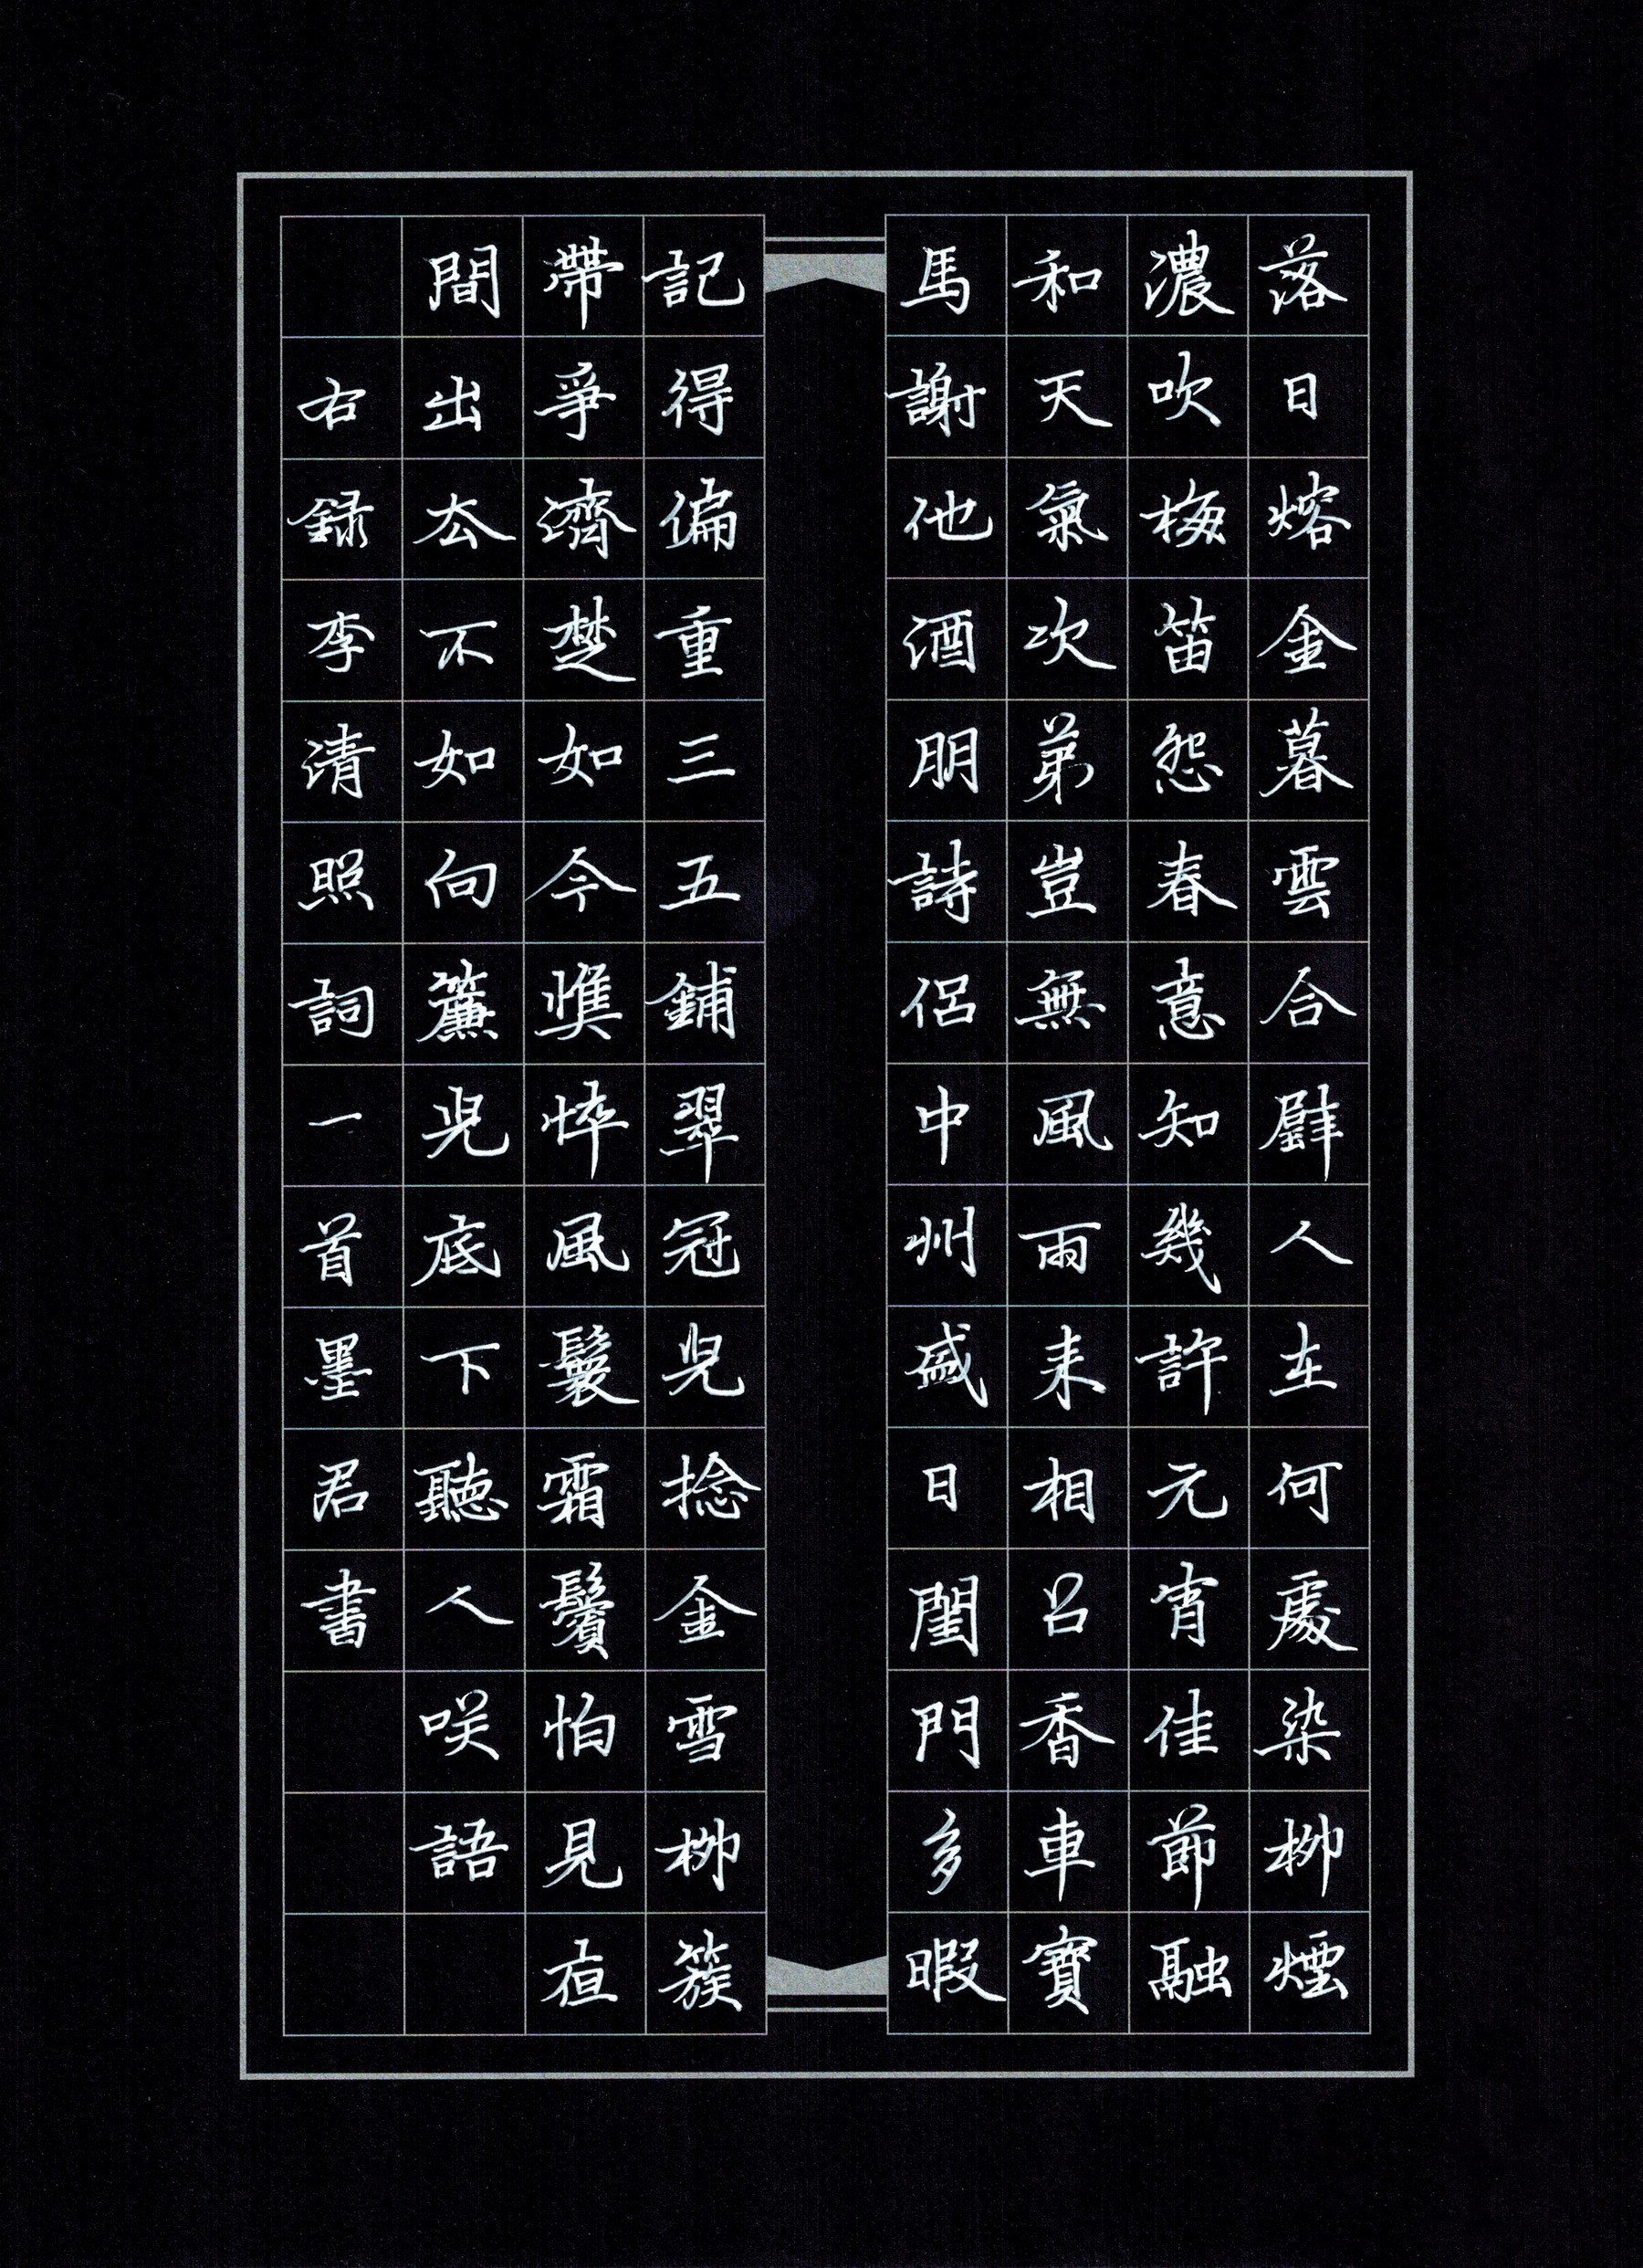 落日熔金暮雲合壁人在何處染柳煙
濃吹梅笛怨春意知幾許元宵佳節融
和天氣次第豈無風雨来相召香車寶
馬謝他酒朋詩侶中州盛日閨門多暇
記得偏重三五鋪翠冠兒捻金雪柳簇
帶爭濟楚如今憔悴風鬟霜鬢怕見夜
間出去不如向簾兒底下聽人咲語
右録李清照詞一首墨君書